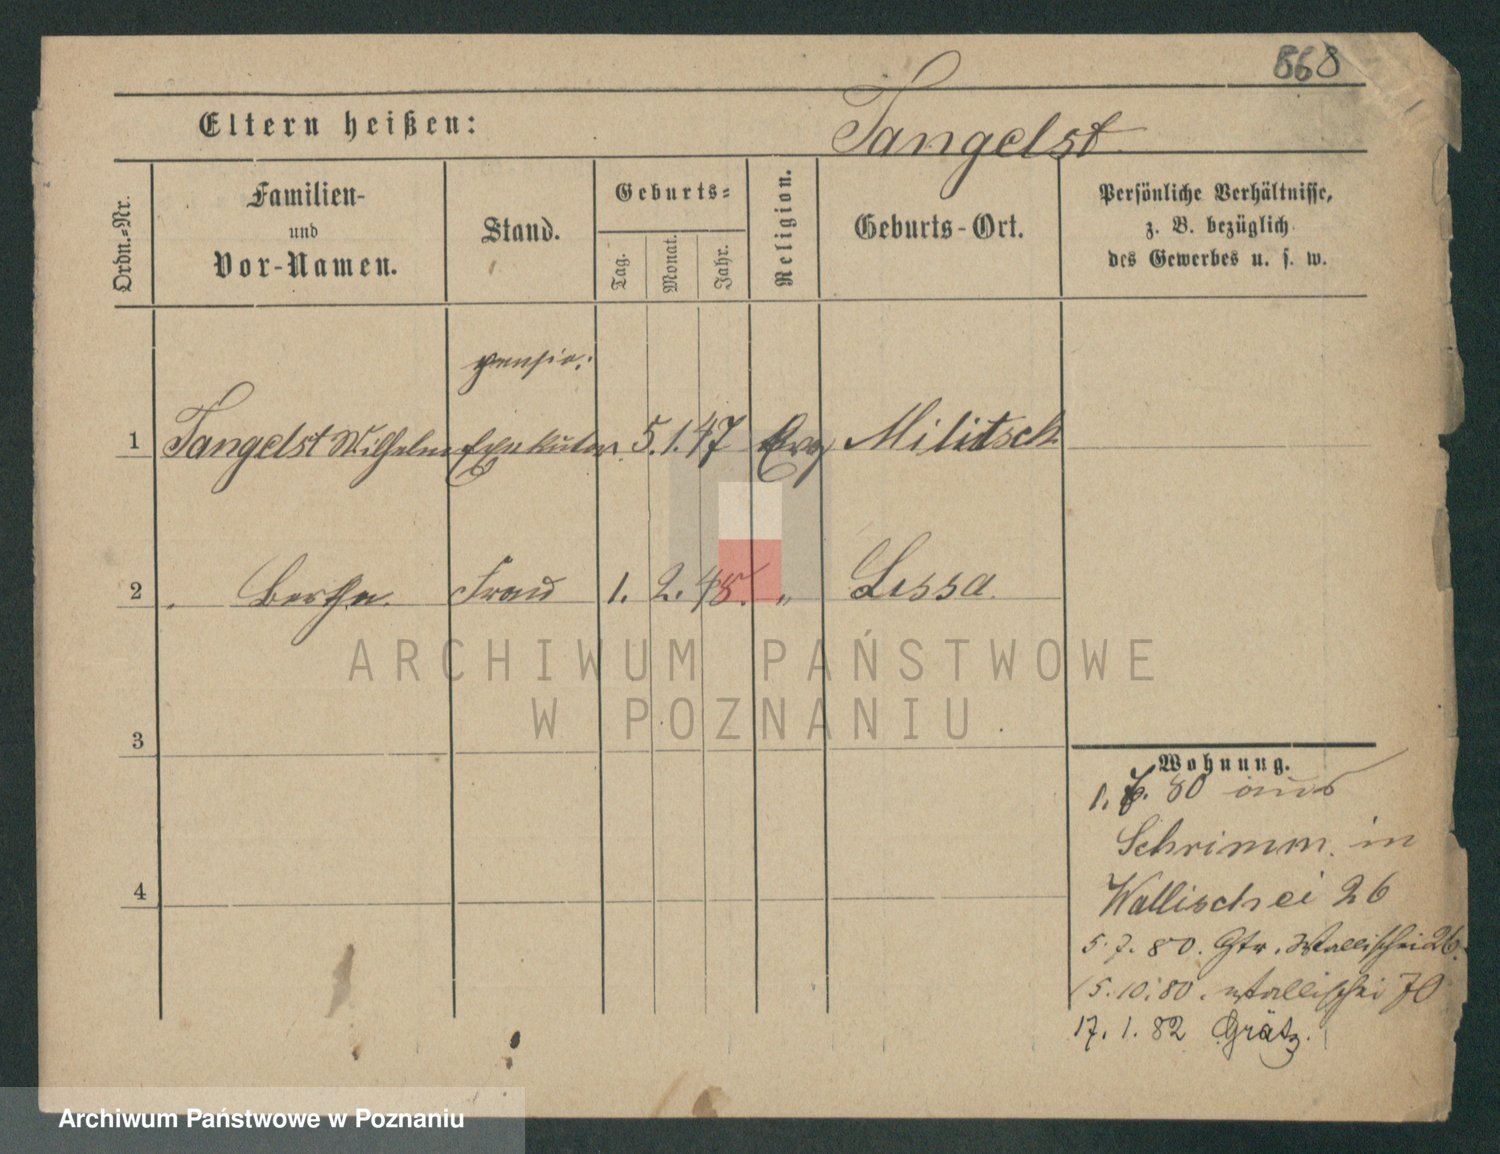 868
Eltern heißen: Tangelst
Ordn.=Nr.
Familien-
und
Vor-Namen.
Stand.
Geburts=
Tag.
Monat.
Jahr.
Religion.
Geburts-Ort.
Persönliche Verhältnisse,
z. B. bezüglich
des Gewerbes u. s. w.
pensio:
1 Tangelst Wilhelm Exekutor 5. 1. 47 Evg Militsch
2 Bertha. Frau 1. 2. 48. " Lissa.
ARCHIWUM PAŃSTWOWE
W POZNANIU
3
Wohnung.
1. 7. 80 aus
Schrimm. in
Wallischei 26
4
5. 7. 80. Wallischei 26.
15. 10. 80. Wallischei 70
17. 1. 82 Grätz.
Archiwum Państwowe w Poznaniu